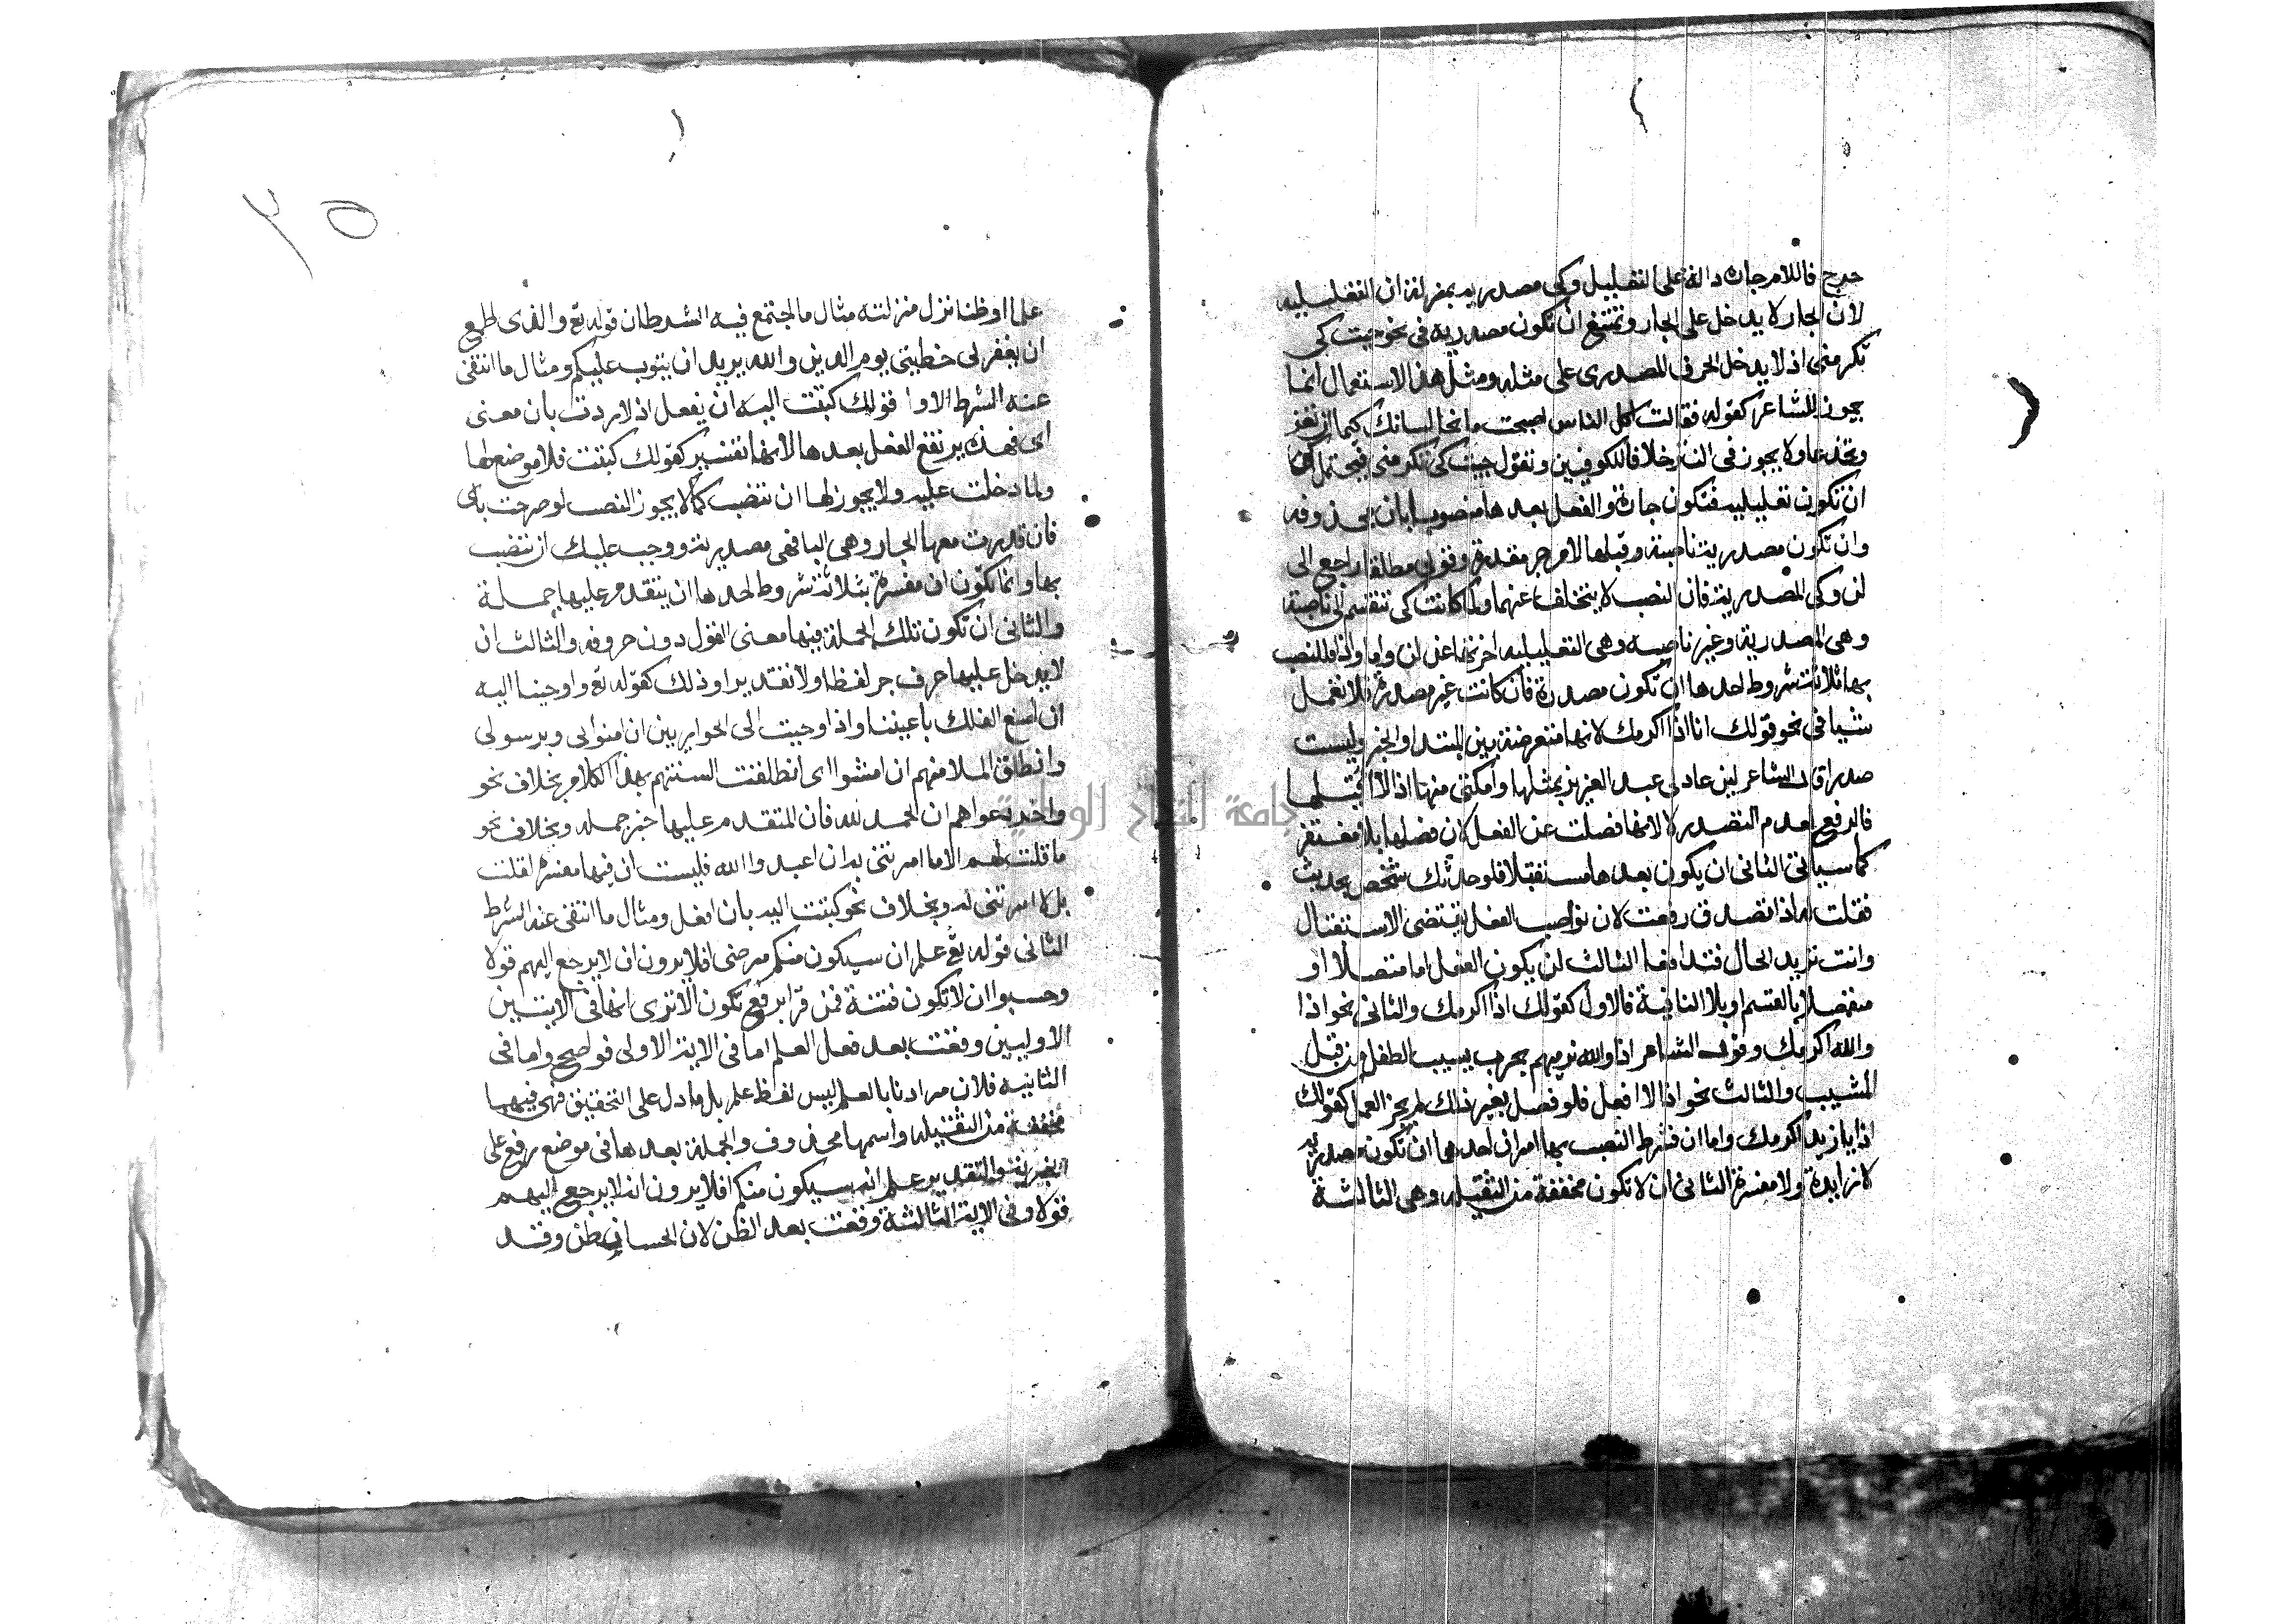 حرج فاللام جارة دالة على التعليل وكي مصدرية بمنزلة ان التعليليه
لان الجار لا يدخل على الجار وتمتنع ان تكون مصدرية في نحو جيت كي
تكرمني اذ لا يدخل الحرف المصدري على مثله ومثل هذا الاستعمال انما
يجوز للشاعر كقوله فقالت اكل الناس اصبحت مانحا لسانك كيما ان تغر
وتخدعا ولا يجوز في النثر خلافا للكوفيين وتقول جيت كي تكرمني فيحتمل
ان تكون تعليلية فتكون جارة والفعل بعدها منصوبا بان محذوفه
وان تكون مصدرية ناصبة وقبلها لام جر مقدرة وقولي مطلقا راجع الى
لن وكي المصدرية فان النصب لا يتخلف عنهما ولما كانت كي تنقسم الى ناصبة
وهي المصدرية وغير ناصبه وهي التعليليه اخرتها عن لن واما اذا فللنصب
بها ثلاثة شروط احدها ان تكون مصدرة فان كانت غير مصدرة فلا تعمل
شيا في نحو قولك انا اذا اكرمك لانها معترضة بين المبتدا والخبر وليست
صدرا قال الشاعر لين عاد لي عبد العزيز بمثلها وامكنني منها اذا لا اقيلها
فالرفع لعدم التصدر لا لانها فصلت عن الفعل لان فصلها بلا مغتفر
كما سياتي الثاني ان يكون بعدها مستقبلا فلو حدثك شخص بحديث
فقلت له اذا تصدق رفعت لان نواصب الفعل تقتضي الاستقبال
وانت تريد الحال فتدافعا الثالث ان يكون الفعل اما متصلا او
منفصلا بالقسم او بلا النافية فالاول كقولك اذا اكرمك والثاني نحو اذا
والله اكرمك وقول الشاعر اذا والله نرميهم بحرب يشيب الطفل من قبل
المشيب والثالث نحو اذا لا افعل فلو فصل بغير ذلك لم يجز العمل كقولك
اذا يا زيد اكرمك واما ان فشرط النصب بها امران احدهما ان تكون مصدرية
لا زايدة ولا مفسرة الثاني ان لا تكون مخففة من الثقيله وهي الثالثة
٣٥
علما او ظنا نزل منزلته مثال ما اجتمع فيه الشرطان قوله تع والذي اطمع
ان يغفر لي خطيتي يوم الدين والله يريد ان يتوب عليكم ومثال ما انتفى
عنه الشرط الاول قولك كتبت اليه ان يفعل اذا اردت بان معنى
اي فهذه يرتفع الفعل بعدها لانها تفسير كقولك كتبت فلا موضع لها
ولما دخلت عليه ولا يجوز لها ان تنصب كما لا يجوز النصب لو صرحت باى
فان قدرت معها الجار وهي البا فهي مصدرية ووجب عليك ان تنصب
بها وانما تكون ان مفسرة بثلاثة شروط احدها ان يتقدم عليها جملة
والثاني ان تكون تلك الجملة فيها معنى القول دون حروفه والثالث ان
لا يدخل عليها حرف جر لفظا ولا تقديرا وذلك كقوله تع واوحينا اليه
ان اصنع الفلك باعيننا واذ اوحيت الى الحواريين ان امنوا بي وبرسولي
وانطلق الملا منهم ان امشوا اي انطلقت السنتهم بهذا الكلام بخلاف نحو
واخر دعواهم ان الحمد لله فان المتقدم عليها خبر جمله وبخلاف نحو
ما قلت لهم الا ما امرتني به ان اعبدوا الله فليست ان فيها مفسرة لقلت
بل لامرتني له وبخلاف نحو كتبت اليه بان افعل ومثال ما انتفى عنه الشرط
الثاني قوله تع علم ان سيكون منكم مرضى افلا يرون ان لا يرجع اليهم قولا
وحسبوا ان لا تكون فتنة فمن قرا برفع تكون الا ترى انها في الايتين
الاوليين وقعت بعد فعل العلم اما في الاية الاولى فواضح واما في
الثانية فلان مرادنا بالعلم ليس لفظ علم بل ما دل على التحقيق فهي فيهما
مخففة من الثقيله واسمها محذوف والجملة بعدها في موضع رفع على
الخبرية والتقدير علم انه سيكون منكم افلا يرون انه لا يرجع اليهم
قولا وفي الاية الثالثة وقعت بعد الظن لان الحسبان ظن وقد
جامعة النجاح الوطنية